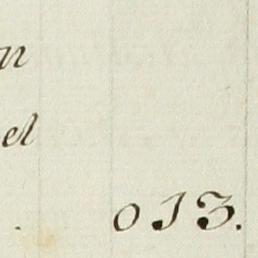 n
el
. 013.